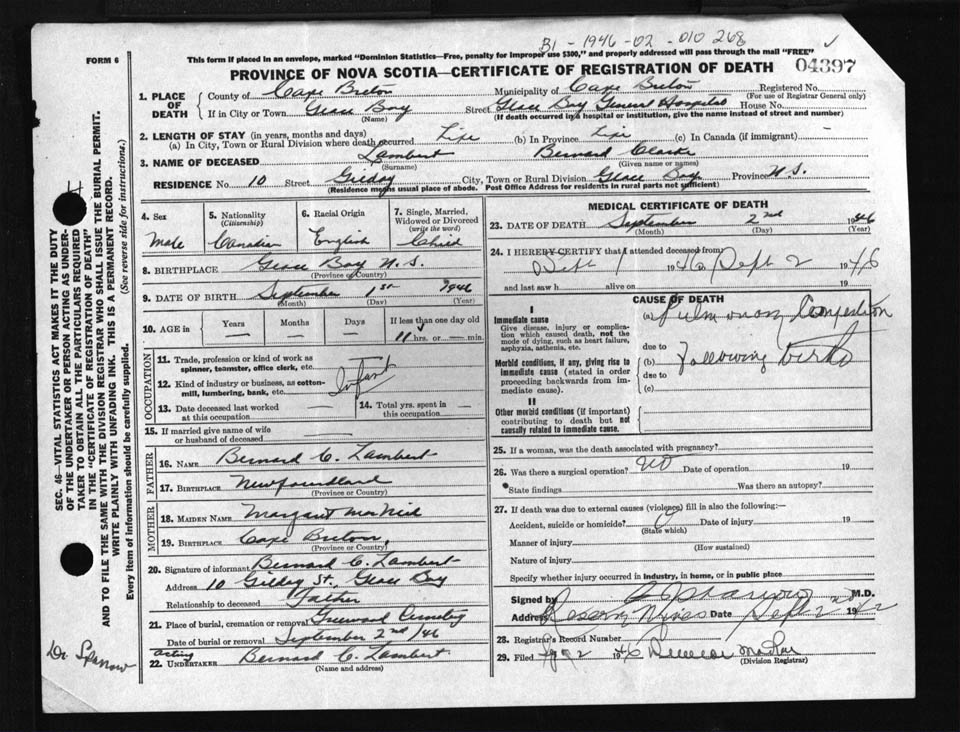 B1 - 1946 - 02 - 010 268
This form if placed in an envelope, marked "Dominion Statistics—Free, penalty for improper use $300," and properly addressed will pass through the mail "FREE"
FORM 6
04397
PROVINCE OF NOVA SCOTIA—CERTIFICATE OF REGISTRATION OF DEATH
1. PLACE OF DEATH
County of Cape Breton Municipality of Cape Breton Registered No.
(For use of Registrar General only)
If in City or Town Glace Bay Street Glace Bay General Hospital House No.
(Name) (If death occurred in a hospital or institution, give the name instead of street and number)
2. LENGTH OF STAY (in years, months and days)
(a) In City, Town or Rural Division where death occurred Life (b) In Province Life (c) In Canada (if immigrant) -
3. NAME OF DECEASED Lambert Bernard Clarke
(Surname) (Given name or names)
RESIDENCE No. 10 Street City, Town or Rural Division Glace Bay Province N.S.
(Residence means usual place of abode. Post Office Address for residents in rural parts not sufficient)
4. Sex
Male
5. Nationality
(Citizenship)
Canadian
6. Racial Origin
English
7. Single, Married, Widowed or Divorced
(write the word)
Child
8. BIRTHPLACE Glace Bay N.S.
(Province or Country)
9. DATE OF BIRTH September 1st 1946
(Month) (Day) (Year)
10. AGE in Years Months Days If less than one day old
— — — 11 hrs. or — min.
OCCUPATION
11. Trade, profession or kind of work as spinner, teamster, office clerk, etc.
12. Kind of industry or business, as cotton-mill, lumbering, bank, etc.
Infant
13. Date deceased last worked at this occupation —
14. Total yrs. spent in this occupation —
15. If married give name of wife or husband of deceased —
FATHER
16. NAME Bernard C. Lambert
17. BIRTHPLACE Newfoundland
(Province or Country)
MOTHER
18. MAIDEN NAME Margaret MacNeil
19. BIRTHPLACE Cape Breton,
(Province or Country)
20. Signature of informant Bernard C. Lambert
Address 10 St., Glace Bay
Relationship to deceased Father
21. Place of burial, cremation or removal Greenwood Cemetery
Date of burial or removal September 2nd/46
acting
22. UNDERTAKER Bernard C. Lambert
(Name and address)
MEDICAL CERTIFICATE OF DEATH
23. DATE OF DEATH September 2nd 1946
(Month) (Day) (Year)
24. I HEREBY CERTIFY that I attended deceased from:
Sept 1 1946 Sept 2 1946
and last saw h alive on 19
CAUSE OF DEATH
I
Immediate cause
Give disease, injury or complication which caused death, not the mode of dying, such as heart failure, asphyxia, asthenia, etc.
Morbid conditions, if any, giving rise to immediate cause (stated in order proceeding backwards from immediate cause).
II
Other morbid conditions (if important) contributing to death but not causally related to immediate cause.
(a) Pulmonary Congestion
due to
(b) following birth
due to
(c)
25. If a woman, was the death associated with pregnancy?
26. Was there a surgical operation? no Date of operation 19
State findings Was there an autopsy?
27. If death was due to external causes (violence) fill in also the following:—
Accident, suicide or homicide? Date of injury 19
(State which)
Manner of injury
(How sustained)
Nature of injury
Specify whether injury occurred in industry, in home, or in public place
Signed by M.D.
Address Date Sept 2 19
28. Registrar's Record Number
29. Filed 1946
(Division Registrar)
SEC. 46—VITAL STATISTICS ACT MAKES IT THE DUTY
OF THE UNDERTAKER OR PERSON ACTING AS UNDER-
TAKER TO OBTAIN ALL THE PARTICULARS REQUIRED
IN THE "CERTIFICATE OF REGISTRATION OF DEATH"
AND TO FILE THE SAME WITH THE DIVISION REGISTRAR WHO SHALL ISSUE THE BURIAL PERMIT.
WRITE PLAINLY WITH UNFADING INK. THIS IS A PERMANENT RECORD.
Every item of information should be carefully supplied. (See reverse side for instructions.)
Dr Sparrow